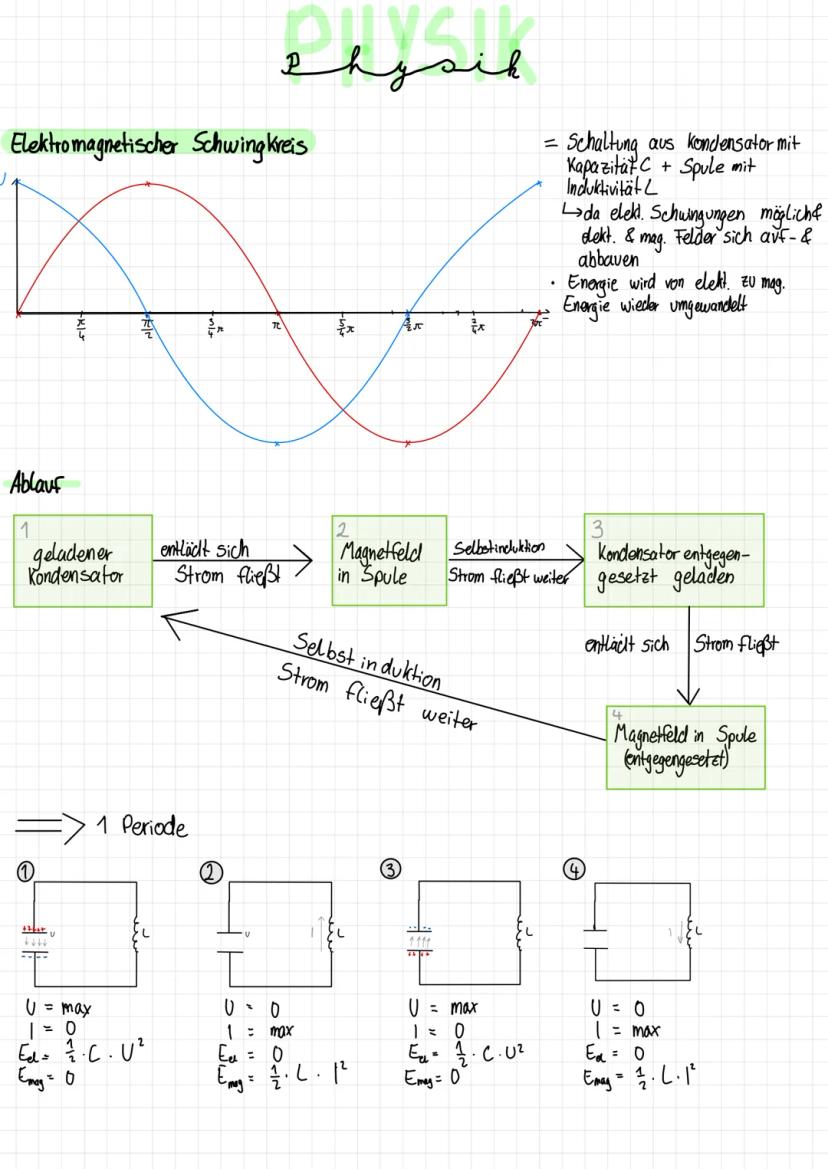 PHYSIK
Physik
Elektromagnetischer Schwingkreis
= Schaltung aus Kondensator mit
Kapazität C + Spule mit
Induktivität L
↳da elekt. Schwingungen möglich &
elekt. & mag. Felder sich auf- &
abbauen
• Energie wird von elekt. zu mag.
Energie wieder umgewandelt
U
π/4
π/2
3/4 π
π
5/4 π
3/2 π
7/4 π
2π
Ablauf
1
geladener
Kondensator
entlädt sich
Strom fließt
2
Magnetfeld
in Spule
Selbstinduktion
Strom fließt weiter
3
Kondensator entgegen-
gesetzt geladen
entlädt sich
Strom fließt
4
Magnetfeld in Spule
(entgegengesetzt)
Selbstinduktion
Strom fließt weiter
=> 1 Periode
1
+++++
U
L
-----
U = max
I = 0
Eel = 1/2 · C · U²
Emag = 0
2
U
I
L
U = 0
I = max
Eel = 0
Emag = 1/2 · L · I²
3
L
U = max
I = 0
Eel = 1/2 · C · U²
Emag = 0
4
I
L
U = 0
I = max
Eel = 0
Emag = 1/2 · L · I²